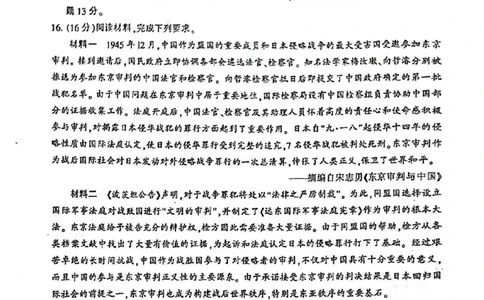 题13分。
16.(16分)阅读材料,完成下列要求。
材料一 1945年12月,中国作为盟国的重要成员和日本侵略战争的最大受害国受邀参加东京
审判。接到邀请后,国民政府立即协调各部会遴选法官、检察官。知名法学家梅汝璈、向哲濬分别被
推选为参加东京审判的中国法官和检察官。向哲濬检察官抵日后即提交了中国政府确定的第一批
战犯名单。由于中国问题在东京审判中居于重要地位,国际检察局设有中国检察组负责协助中国部
分的证据收集工作。法庭开庭后,中国法官、检察官及其助理人员怀着高度的责任心和使命感积极
参与审判,对揭露日本侵华战犯的罪行方面起到了重要作用。日本自“九·一八”起侵华十四年的侵
略性质由国际法庭认定,使日本的侵华罪行受到完整的追究,7名侵华战犯被判处死刑。东京审判作
为战后国际社会对日本发动对外侵略战争罪行的一次总清算,伸张了人类正义,保卫了世界和平。
——摘编自宋志勇《东京审判与中国》
材料二 《波茨坦公告》声明,对于战争罪犯将处以“法律之严厉制裁”。为此,同盟国选择设立
国际军事法庭对战败国进行“文明的审判”,并制定了《远东国际军事法庭宪章》作为审判的根本大
法。东京法庭给予被告充分的辩护权,检方因此需要准备大量证据。由于同盟国的帮助,检方从各
类档案文献中找出了大量有价值的证据,为起诉和法庭认定日本的侵略罪行打下了基础。经过艰
苦卓绝的长时间抗战,中国作为战胜国参与了对侵略者的审判,不仅对中国具有十分重要的意义,
而且中国的参与是东京审判正义性的主要源泉。由于承诺接受东京审判的判决结果是日本回归国
际社会的前提之一,东京审判也成为构建战后世界秩序,特别是东亚秩序的重要基石。